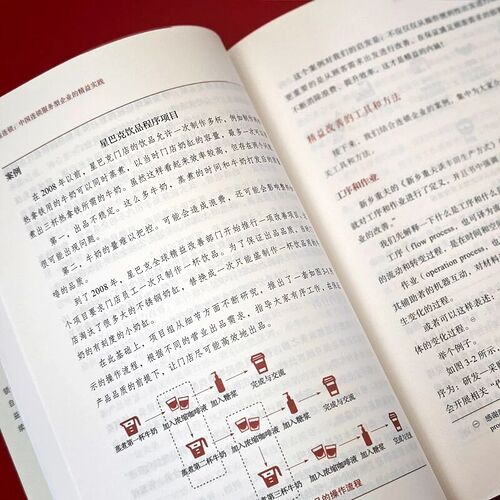 连锁：中国连锁服务型企业的精益实践
案例
星巴克饮品程序项目
在2008年以前，星巴克门店的饮品允许一次制作多杯，例如制作
热拿铁用的牛奶可以同时蒸煮，以当时门店奶缸的容量，最多一次可以
蒸煮出三杯热拿铁所需的牛奶。虽然这样看起来效率较高，但存在两个
第一，出品不稳定。这么多牛奶，蒸煮的时间和牛奶打发后的
很可能出现问题。
第二，牛奶的量难以把控。可能会造成浪费，还可能会影响
啡的品质。
到了2008年，星巴克全球精益改善部门开始推行一项改善项目，
个项目要求门店员工一次只制作一杯饮品。为了保证出品品质，
店淘汰了很多大的不锈钢奶缸，替换成一次只能盛制作一杯饮品
奶的有刻度的小奶缸。
在此基础上，项目组从细节方面不断研究，推出了一套如图3-1所
示的操作流程，根据不同的营业出品需求，指导大家有序工作，在
产品品质的前提下，让门店尽可能高效地出品。
蒸煮第一杯牛奶
加入浓缩咖啡液
加入糖浆
完成与交流
蒸煮第二杯牛奶
加入浓缩咖啡液
加入糖浆
完成与交流
蒸煮第三杯牛奶
加入浓缩咖啡液
加入糖浆
完成与交流
的操作流程
这个案例对我们的启发是：不仅仅仅从操作便利性的
更重要的是从顾客需求出发进行改善。在保证满足顾客需求的
不断消除浪费、提升效率，这才是精益的内涵！
精益改善的工具和方法
接下来，我们结合连锁企业的案例，集中为大家
关工具和方法。
工序和作业
新乡重夫的《新乡重夫谈丰田生产方式》
就对工序和作业进行了定义，并且书中强调
业的改善。”
我们先解释一下什么是工序和作
工序（flow process，也可译为
的流动和转变过程，是在时间和空
作业（operation process，
其辅助者的机器互动，对材料
生变化的过程。
或者可以这样表述：
体的变化过程。㊀
举个例子。
如图3-2所示，
序为：研发—采
会开展相关
㊀ 感谢